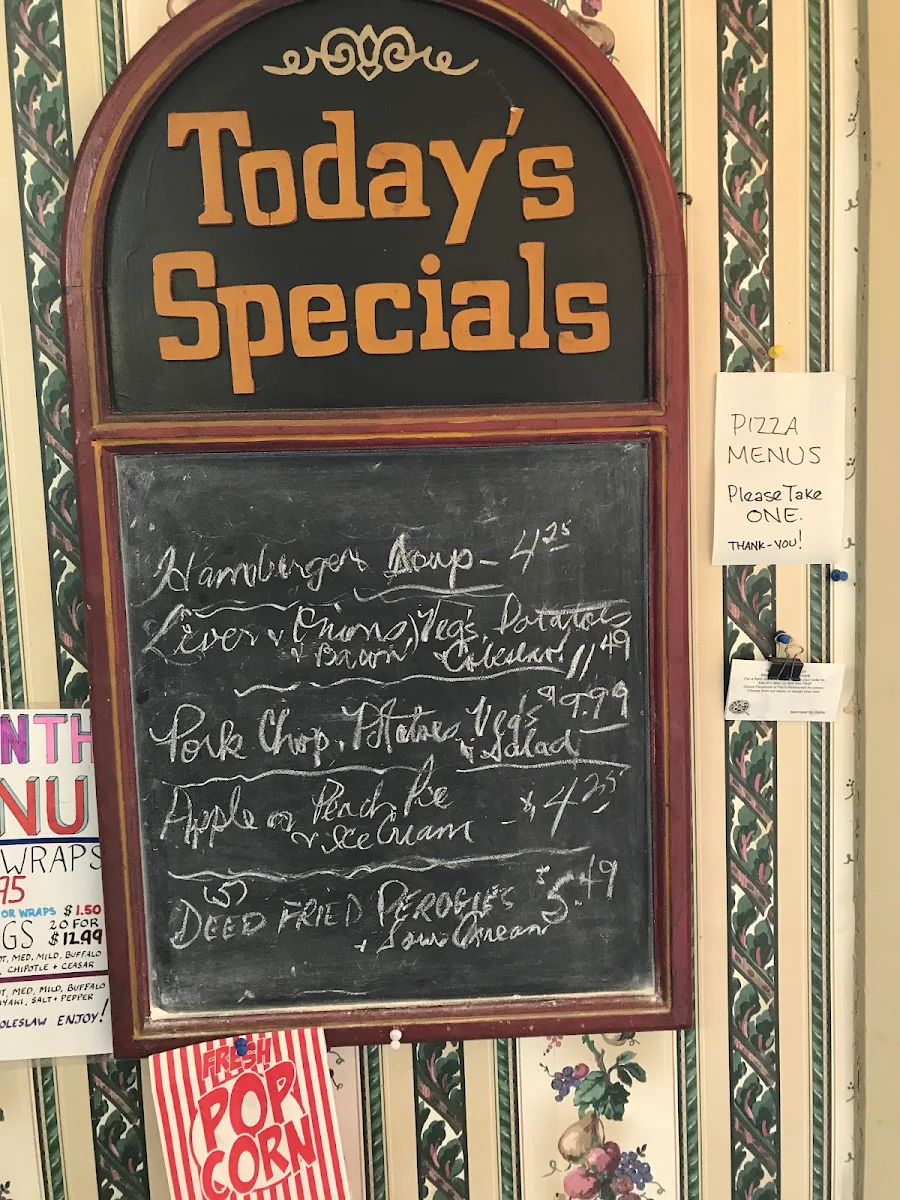 Today's
Specials
Hamburger Soup - 4.25
Liver & Onions, Veg's, Potatoes
& Bacon) Coleslaw 11.49
Pork Chop, Potatoes, Veg's $9.99
& Salad
Apple or Peach Pie
& Ice Cream - $4.25
(5)
DEED FRIED PEROGIES $5.49
+ Sour Cream
PIZZA
MENUS
Please Take
ONE.
THANK-YOU!
NTH
NU
WRAPS
95
OR WRAPS $1.50
GS 20 FOR
$12.99
OT, MED, MILD, BUFFALO
, CHIPOTLE + CEASAR
OT, MED, MILD, BUFFALO
YAKI, SALT + PEPPER
OLESLAW ENJOY!
FRESH
POP
CORN